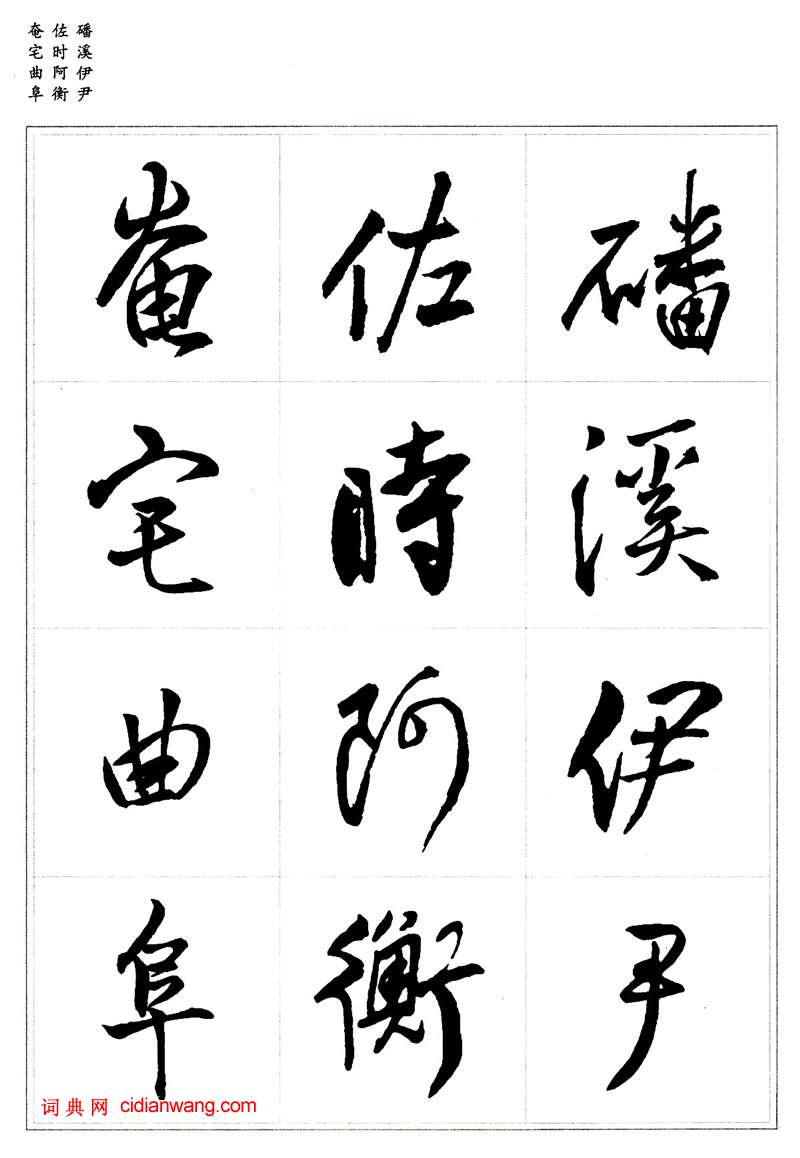 磻溪伊尹
佐时阿衡
奄宅曲阜
磻溪伊尹
佐時阿衡
奄宅曲阜
词典网 cidianwang.com